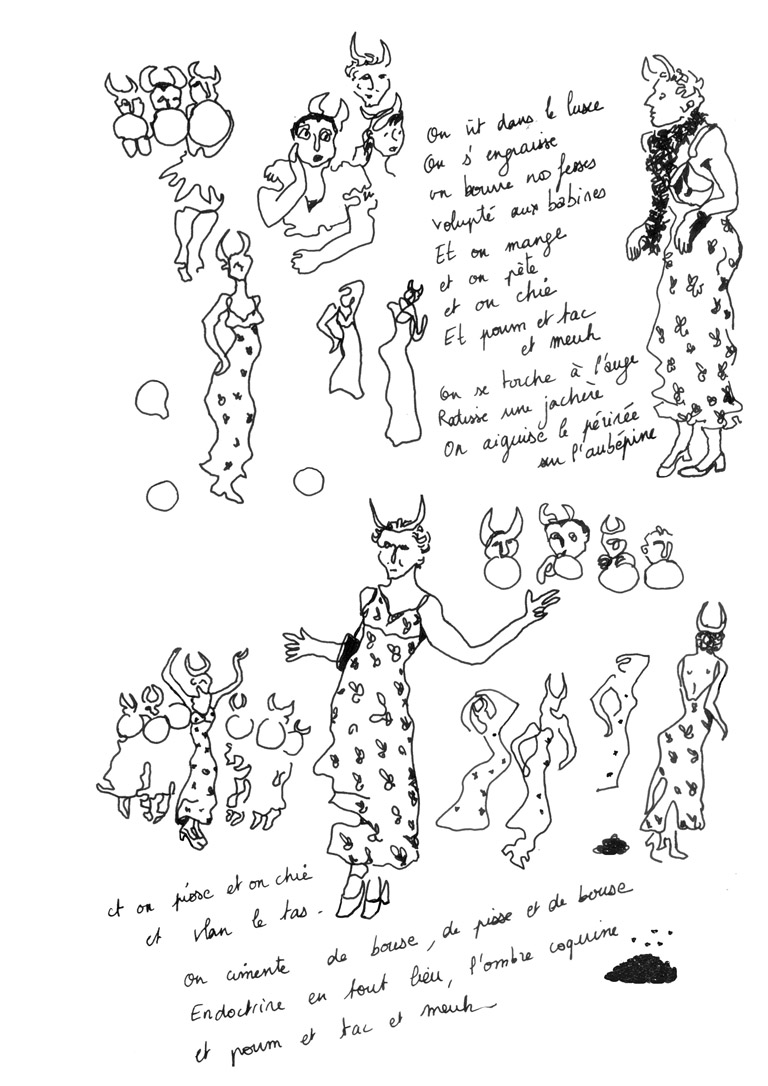 On vit dans le luxe
On s'engraisse
on bourre nos fesses
volupté aux babines
Et on mange
et on pète
et on chie
Et poum et tac
et meuh
On se torche à l'auge
Ratisse une jachère
On aiguise le périnée
sur l'aubépine
et on pisse et on chie
et vlan le tas.
on cimente de bouse, de pisse et de bouse
Endoctrine en tout lieu, l'ombre coquine
et poum et tac et meuh